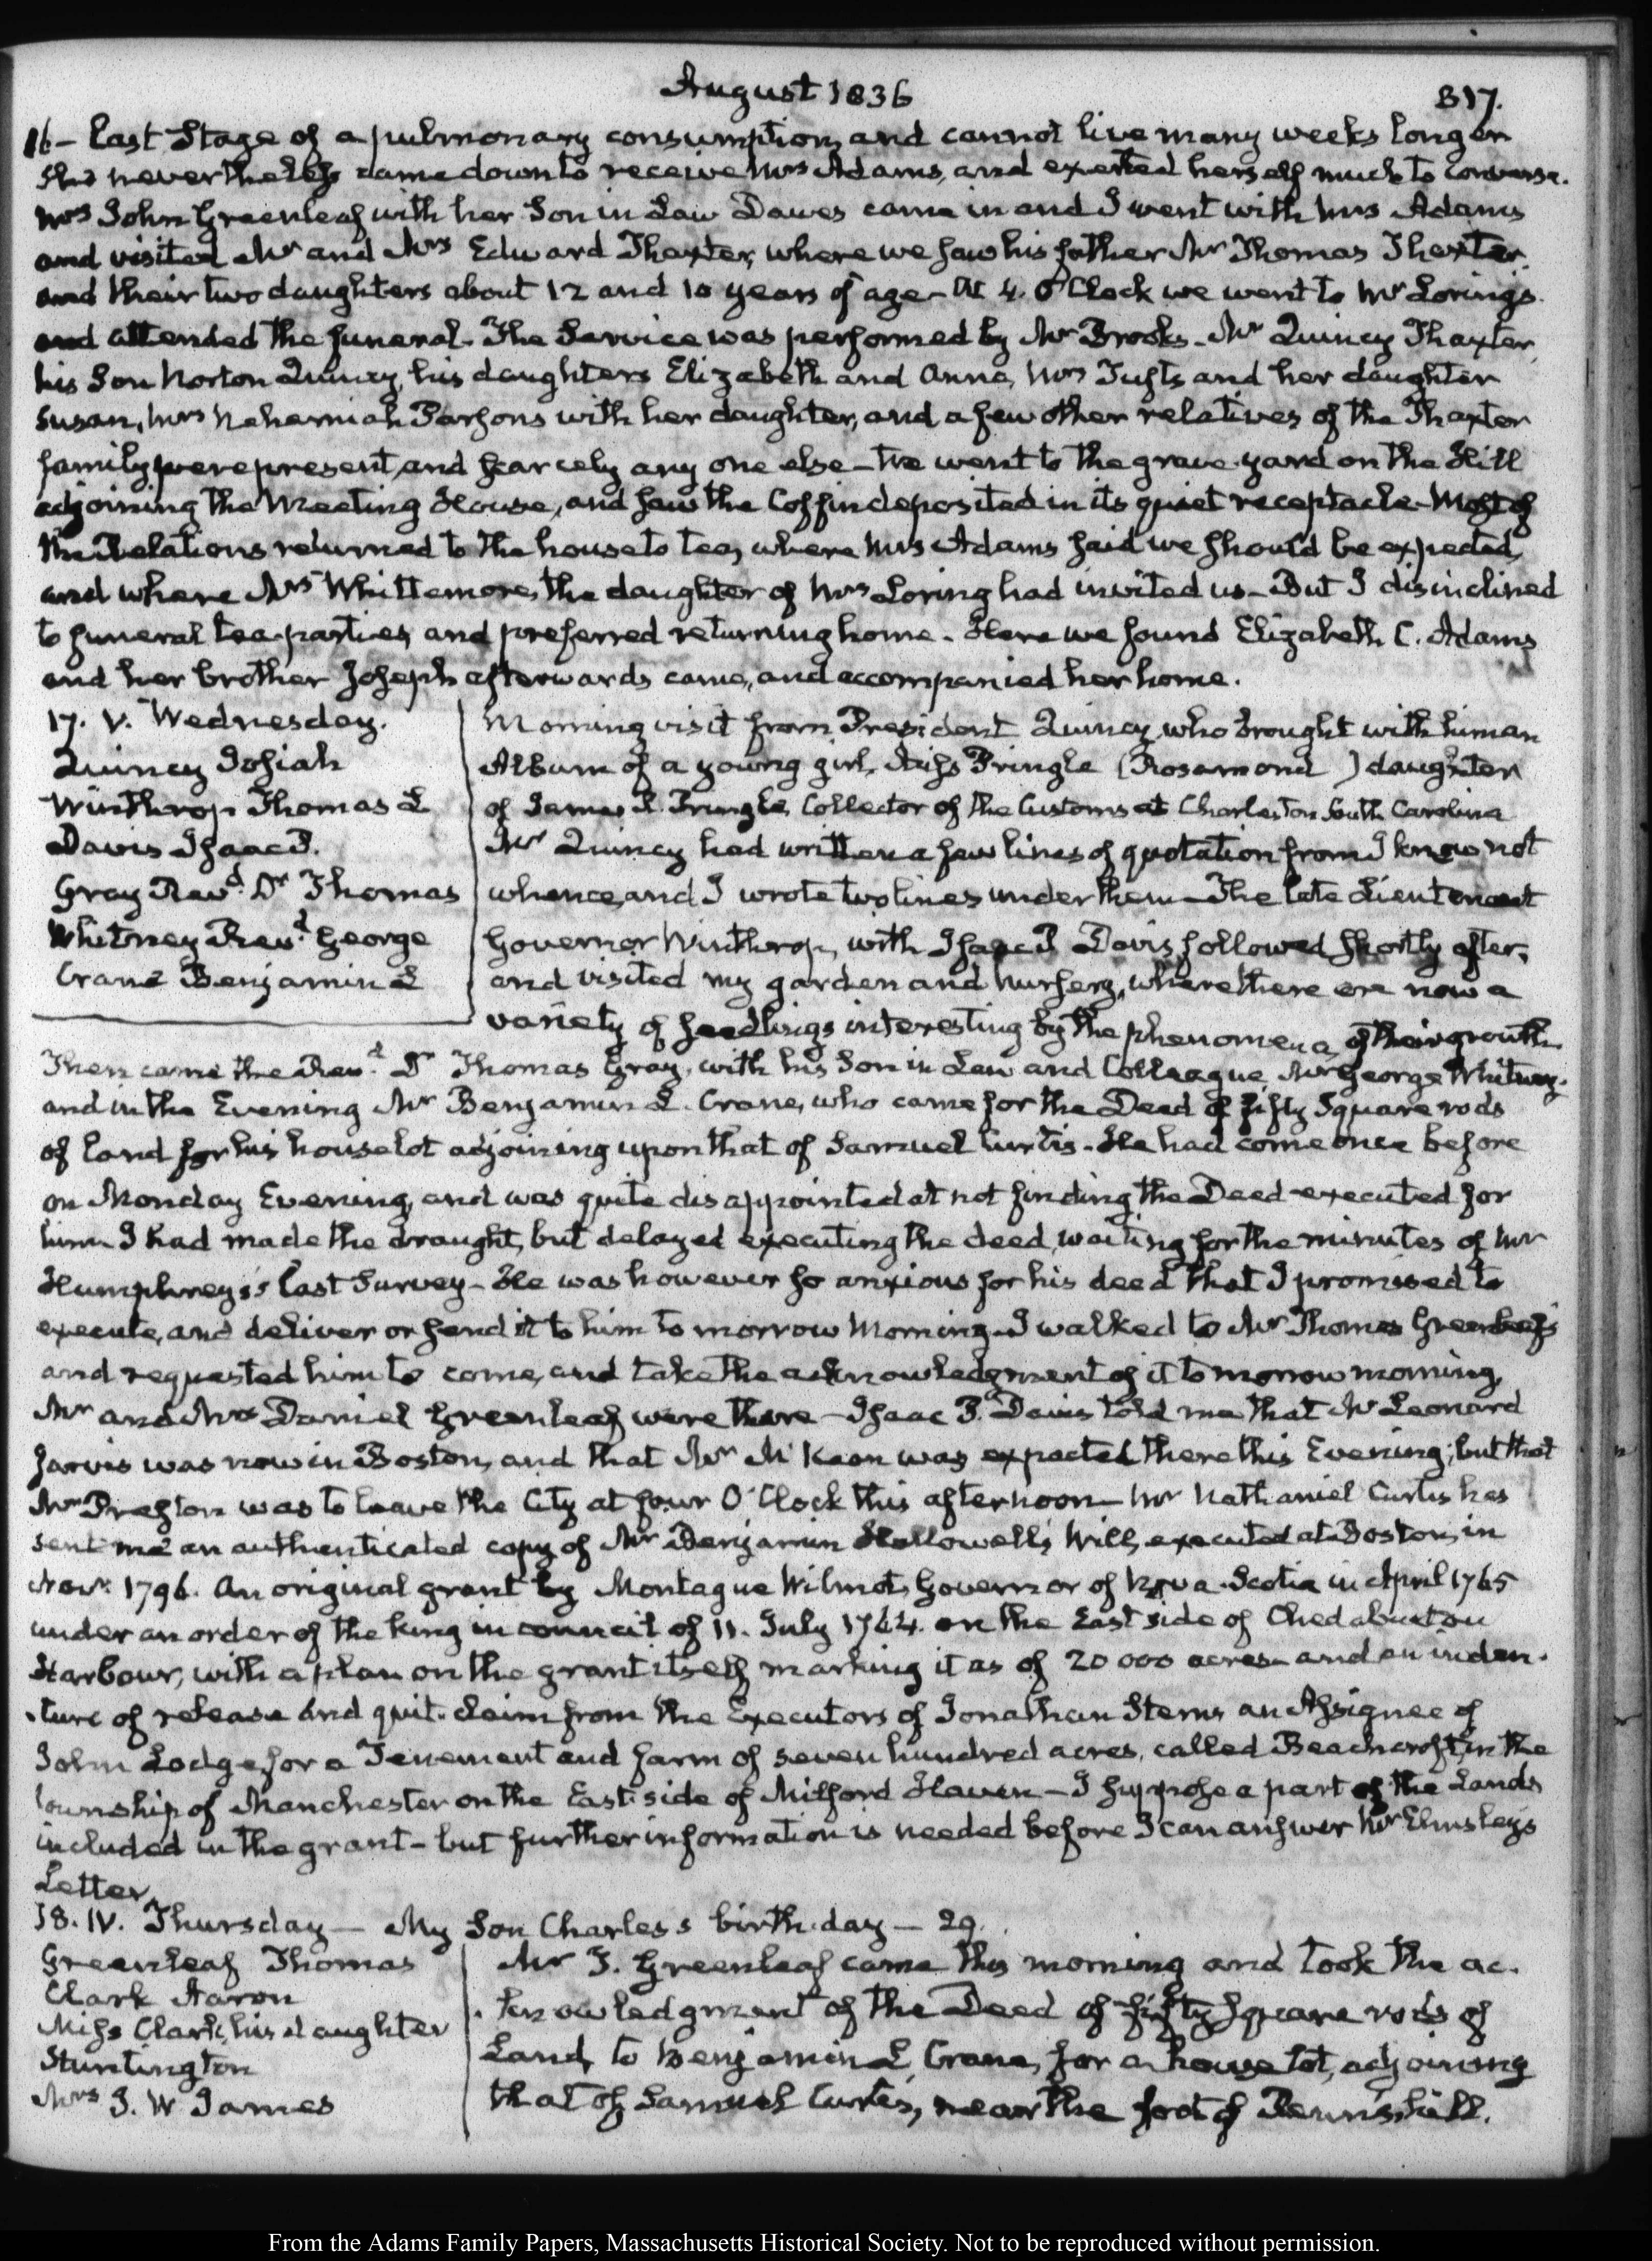 August 1836
317.
16 - last Stage of a pulmonary consumption, and cannot live many weeks longer
She nevertheless came down to receive Mrs Adams, and exerted herself much to converse.
Mrs John Greenleaf with her Son in Law Dawes came in and I went with Mrs Adams
and visited Mr and Mrs Edward Thaxter, where we saw his father Mr Thomas Thaxter,
and their two daughters about 12 and 10 years of age - At 4. O'Clock we went to Mr Loring's.
and attended the funeral. The Service was performed by Mr Brooks - Mr Quincy Thaxter,
his Son Norton Quincy, his daughters Elizabeth and Anna, Mrs Tufts and her daughter
Susan, Mrs Nehemiah Parsons with her daughter, and a few other relatives of the Thaxter
family, were present, and scarcely any one else - We went to the grave-yard on the Hill
adjoining the Meeting House, and saw the Coffin deposited in its quiet receptacle - Most of
the Relations returned to the house to tea, where Mrs Adams said we should be expected,
and where Mrs Whittemore, the daughter of Mrs Loring had invited us - But I disinclined
to funeral tea-parties, and preferred returning home - Here we found Elizabeth C. Adams
and her brother Joseph afterwards came, and accompanied her home.
17. V. Wednesday.
Quincy Josiah
Winthrop Thomas L
Davis Isaac P.
Gray Revd. Dr Thomas
Whitney Revd. George
Crane Benjamin L
Morning visit from President Quincy, who brought with him an
Album of a young girl, Miss Pringle (Rosamond ) daughter
of James R. Pringle, Collector of the Customs at Charleston South Carolina
Mr Quincy had written a few lines of quotation from I know not
whence, and I wrote two lines under them - The late Lieutenant
Governor Winthrop, with Isaac P. Davis, followed shortly after,
and visited my garden and nursery, where there are now a
variety of seedlings interesting by the phenomena of their growth.
Then came the Revd. Dr Thomas Gray, with his Son in Law and Colleague, Mr George Whitney.
and in the Evening Mr Benjamin L. Crane, who came for the Deed of fifty Square rods
of land for his house lot adjoining upon that of Samuel Curtis - He had come once before
on Monday Evening, and was quite disappointed at not finding the Deed executed for
him - I had made the draught, but delayed executing the deed, waiting for the minutes of Mr
Humphreys's last Survey - He was however so anxious for his deed that I promised to
execute, and deliver or send it to him to morrow Morning - I walked to Mr Thomas Greenleaf's
and requested him to come, and take the acknowledgment of it to morrow morning,
Mr and Mrs Daniel Greenleaf were there - Isaac P. Davis told me that Mr Leonard
Jarvis was now in Boston, and that Mr McKean was expected there this Evening; but that
Mr Preston was to leave the City at four O'Clock this afternoon - Mr Nathaniel Curtis has
sent me an authenticated copy of Mr Benjamin Hallowell's Will, executed at Boston, in
Novr. 1796. An original grant by Montague Wilmot, Governor of Nova-Scotia in April 1765
under an order of the king in council of 11. July 1764. on the East side of Chedabucton
Harbour, with a plan on the grant itself marking it as of 20 000 acres - and an inden-
-ture of release and quit-claim from the Executors of Jonathan Sterns an Assignee of
John Lodge, for a Tenement and farm of seven hundred acres, called Beachcroft, in the
township of Manchester on the East side of Milford Haven - I suppose a part of the Lands
included in the grant - but further information is needed before I can answer Mr Elmsley's
Letter.
18. IV. Thursday - My Son Charles's birth-day - 29.
Greenleaf Thomas
Clark Aaron
Miss Clark, his daughter
Huntington
Mrs J. W James
Mr T. Greenleaf came this morning and took the ac-
-knowledgment of the Deed of fifty square rods of
Land, to Benjamin L. Crane, for a house lot, adjoining
that of Samuel Curtis, near the foot of Penn's hill.
From the Adams Family Papers, Massachusetts Historical Society. Not to be reproduced without permission.